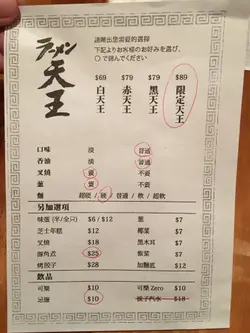 ラーメン
天王
請圈出您需要的選擇
下記よりお客様のお好みを選び、
○で囲んでください
$69 $79 $79 $89
白天王 赤天王 黑天王 限定天王
口味 淡 普通
香油 淡 普通
叉燒 瘦 不要
蔥 蔥 不要
麵 超硬 / 硬 / 普通 / 軟 / 超軟
另加選項
味蛋 (半/全只) $6 / $12 蔥 $7
芝士年糕 $12 椰菜 $7
叉燒 $18 黑木耳 $7
豚角煮 $25 紫菜 $7
烤餃子 $28 加麵底 $12
飲品
可樂 $10 可樂 Zero $10
忌廉 $10 波子汽水 $18